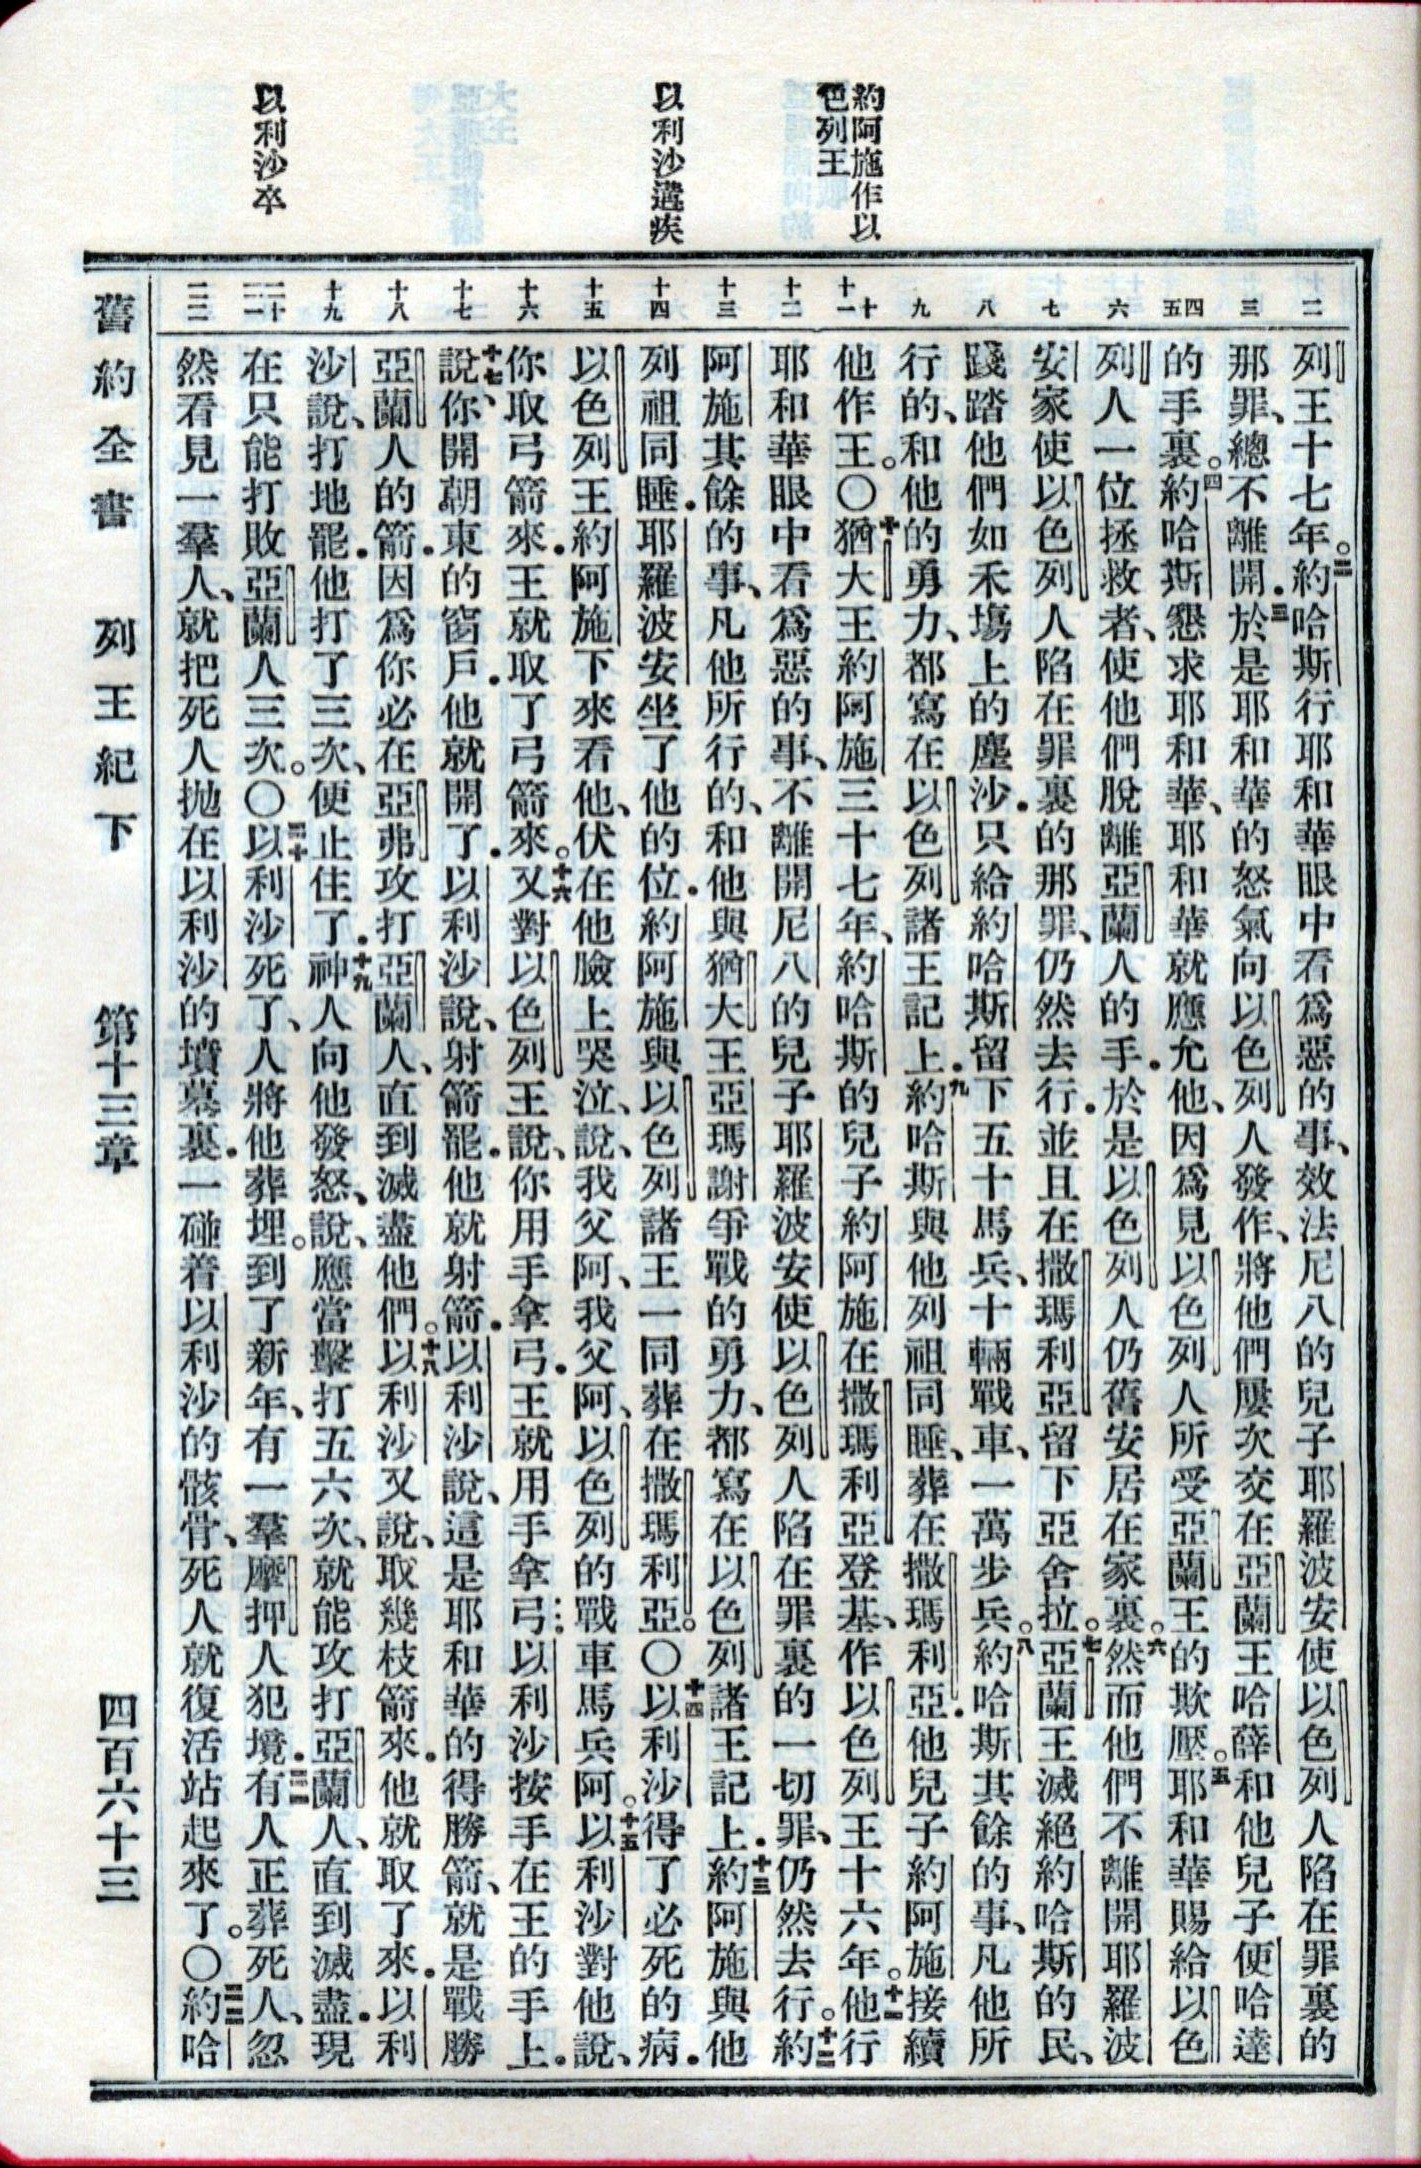 約阿施作以
色列王
以利沙遘疾
以利沙卒
二
三
四五
六
七
八
九
十十一
十二
十三
十四
十五
十六
十七
十八
十九
二十二一
二二
列王十七年。二約哈斯行耶和華眼中看爲惡的事、效法尼八的兒子耶羅波安使以色列人陷在罪裏的
那罪、總不離開．三於是耶和華的怒氣向以色列人發作、將他們屢次交在亞蘭王哈薛和他兒子便哈達
的手裏。四約哈斯懇求耶和華、耶和華就應允他、因爲見以色列人所受亞蘭王的欺壓。五耶和華賜給以色
列人一位拯救者、使他們脫離亞蘭人的手．於是以色列人仍舊安居在家裏。六然而他們不離開耶羅波
安家使以色列人陷在罪裏的那罪、仍然去行．並且在撒瑪利亞留下亞舍拉。七亞蘭王滅絕約哈斯的民、
踐踏他們如禾場上的塵沙．只給約哈斯留下五十馬兵、十輛戰車、一萬步兵。八約哈斯其餘的事、凡他所
行的、和他的勇力、都寫在以色列諸王記上．九約哈斯與他列祖同睡、葬在撒瑪利亞．他兒子約阿施接續
他作王。〇十猶大王約阿施三十七年、約哈斯的兒子約阿施在撒瑪利亞登基、作以色列王十六年。十一他行
耶和華眼中看爲惡的事、不離開尼八的兒子耶羅波安使以色列人陷在罪裏的一切罪、仍然去行。十二約
阿施其餘的事、凡他所行的、和他與猶大王亞瑪謝爭戰的勇力、都寫在以色列諸王記上．十三約阿施與他
列祖同睡．耶羅波安坐了他的位．約阿施與以色列諸王一同葬在撒瑪利亞。〇十四以利沙得了必死的病．
以色列王約阿施下來看他、伏在他臉上哭泣、說、我父阿、我父阿、以色列的戰車馬兵阿。十五以利沙對他說、
你取弓箭來．王就取了弓箭來。十六又對以色列王說、你用手拿弓．王就用手拿弓．以利沙按手在王的手上．
十七說、你開朝東的窗戶．他就開了．以利沙說、射箭罷．他就射箭．以利沙說、這是耶和華的得勝箭、就是戰勝
亞蘭人的箭．因爲你必在亞弗攻打亞蘭人、直到滅盡他們。十八以利沙又說、取幾枝箭來．他就取了來．以利
沙說、打地罷．他打了三次、便止住了．十九神人向他發怒、說、應當擊打五六次、就能攻打亞蘭人、直到滅盡．現
在只能打敗亞蘭人三次。〇二十以利沙死了、人將他葬埋。到了新年、有一羣摩押人犯境．二一有人正葬死人、忽
然看見一羣人、就把死人拋在以利沙的墳墓裏．一碰着以利沙的骸骨、死人就復活站起來了。〇二二約哈
舊約全書　列王紀下　第十三章　四百六十三